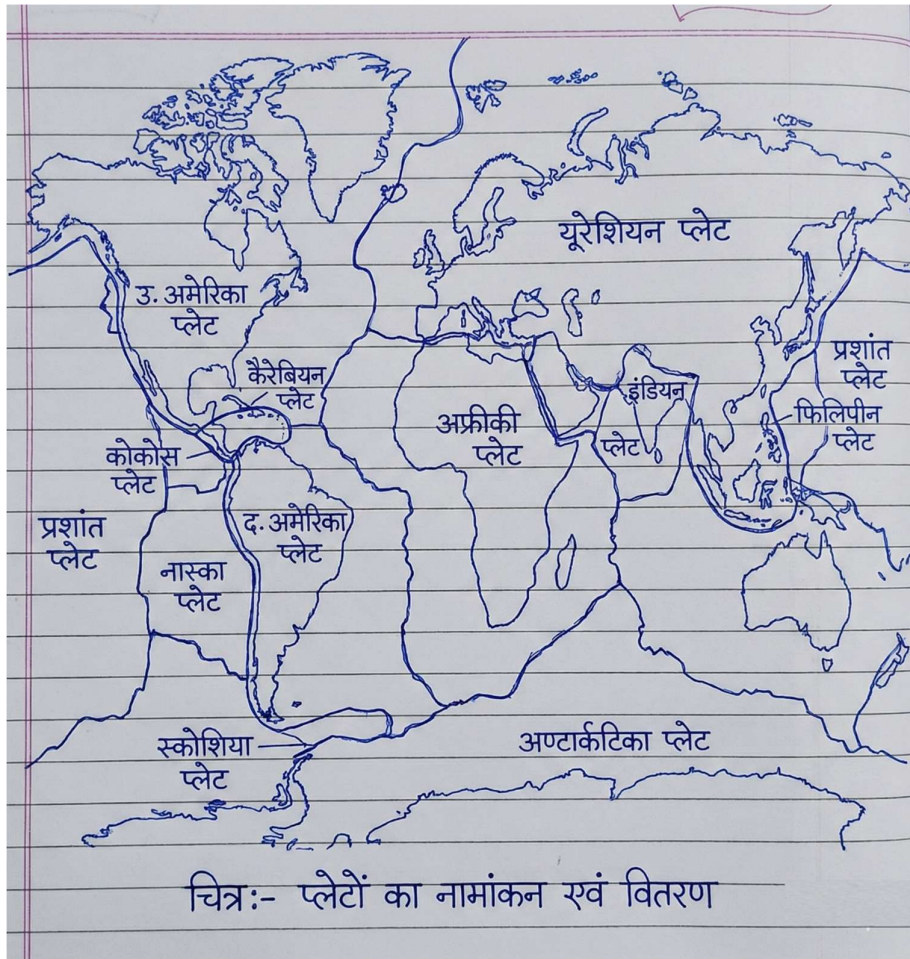 यूरेशियन प्लेट
उ. अमेरिका
प्लेट
कैरेबियन
प्लेट
प्रशांत
प्लेट
इंडियन
प्लेट
फिलिपीन
प्लेट
अफ्रीकी
प्लेट
कोकोस
प्लेट
प्रशांत
प्लेट
द. अमेरिका
प्लेट
नास्का
प्लेट
स्कोशिया
प्लेट
अण्टार्कटिका प्लेट
चित्र:- प्लेटों का नामांकन एवं वितरण